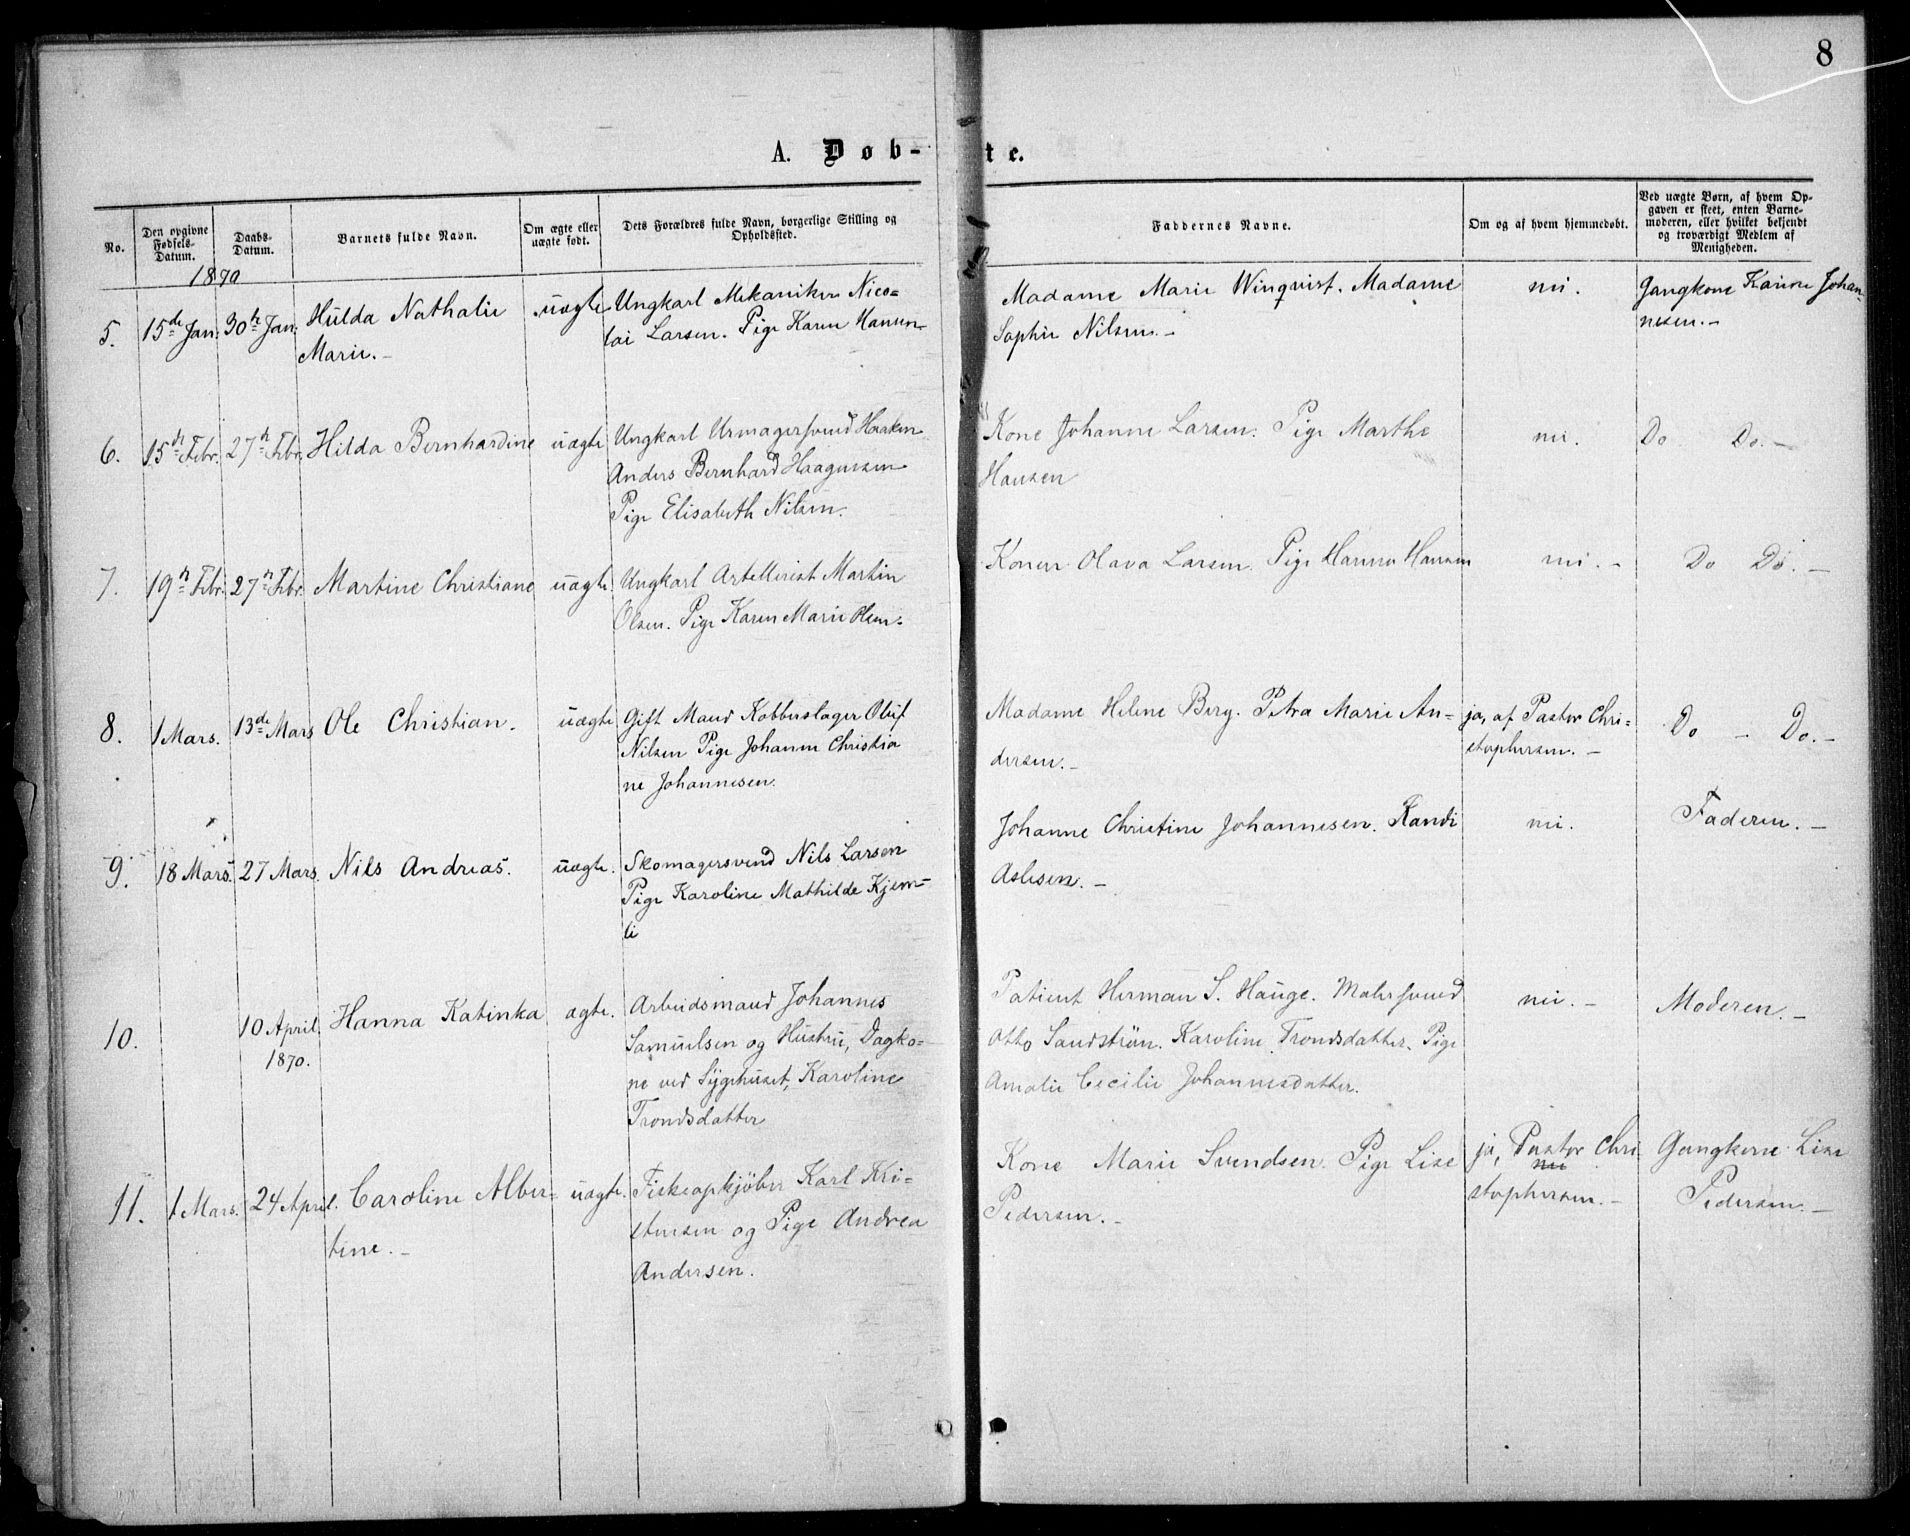 8
A. Døb-
te.
No.
Den opgivne Fødsels-Datum.
Daabs-Datum.
Barnets fulde Navn.
Om ægte eller uægte født.
Dets Forældres fulde Navn, borgerlige Stilling og Opholdssted.
Faddernes Navne.
Om og af hvem hjemmedøbt.
Ved uægte Børn, af hvem Opgaven er skeet, enten Barnemoderen, eller hvilket bekjendt og troværdigt Medlem af Menigheden.
1870
5. 15de Jan: 30te Jan: Hulda Nathalie uægte Ungkarl Mekaniker Nico-
Marie.- lai Larsen. Pige Karen Hansen-
Madame Marie Winqvist. Madame nei. Gangkone Karine Johan-
Sophie Nilsen.- nesen.-
6. 15de Febr. 27de Febr. Hilda Bernhardine uægte Ungkarl Urmagersvend Haaken
Anders Bernhard Haagensen
Pige Elisabeth Nilsen.
Kone Johanne Larsen. Pige Marthe nei. Do Do.-
Hansen
7. 19n Febr. 27n Febr. Martine Christiane uægte. Ungkarl Artellerist Martin
Olsen. Pige Karen Marie Olsen.
Konen Olava Larsen. Pige Hanna Hansen nei.- Do Do.-
8. 1 Mars. 13de Mars Ole Christian. uægte Gift Mand Kobberslager Oluf
Nilsen Pige Johanne Christia
ne Johannesen.
Madame Helene Berg. Petra Marie An- ja, af Pastor Chri- Do - Do.-
dersen.- stophersen.-
9. 18 Mars. 27 Mars. Nils Andreas. uægte. Skomagersvend Nils Larsen
Pige Karoline Mathilde Kjem-
li
Johanne Christine Johannesen. Randi nei. Faderen.-
Aslesen.-
10. 10 April. Hanna Katinka ægte. Arbeidsmand Johannes
1870. Samuelsen og Hustru, Dagko-
ne ved Sygehuset, Karoline
Trondsdatter
Patient Herman S. Hauge. Malersvend nei.- Moderen.-
Otto Sandstrøn. Karoline Trondsdatter. Pige
Amalie Cecilie Johannesdatter.
11. 1 Mars. 24 April. Caroline Alber- uægte. Fiskeopkjøber Karl Kri-
tine.- stensen og Pige Andrea
Andersen.
Kone Marie Svendsen. Pige Lise ja, Pastor Chri Gangkone Lise
nei
Pedersen.- stophersen.- Pedersen.-